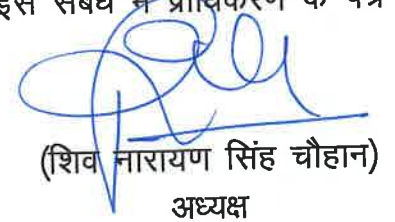 इस संबंध में प्राधिकरण के पत्र
(शिव नारायण सिंह चौहान)
अध्यक्ष